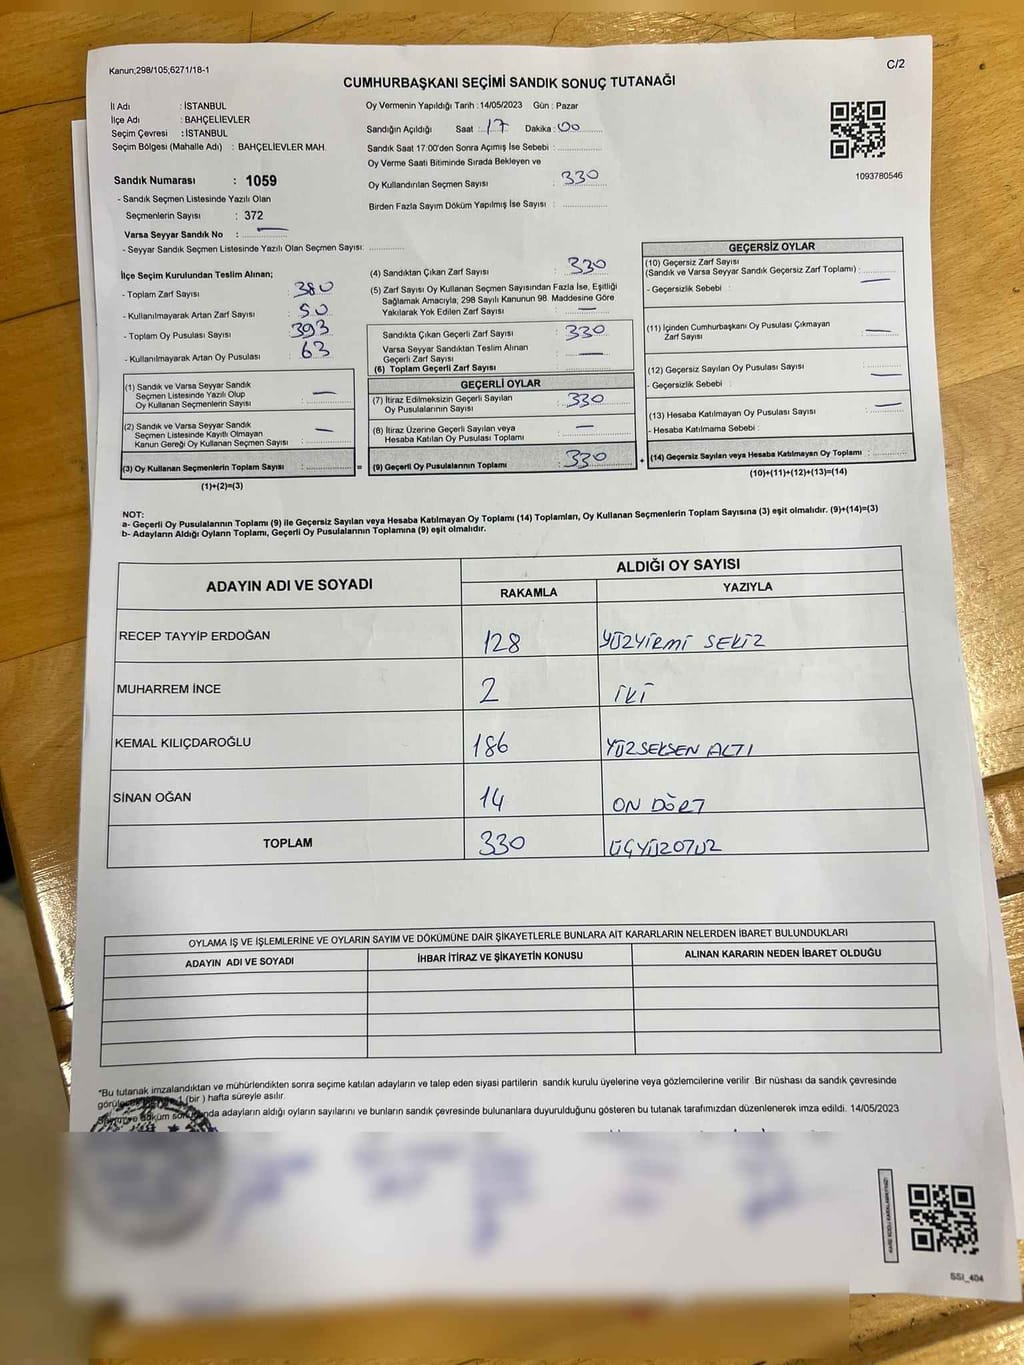 Kanun;298/105;6271/18-1
C/2
CUMHURBAŞKANI SEÇİMİ SANDIK SONUÇ TUTANAĞI
İl Adı : İSTANBUL
İlçe Adı : BAHÇELİEVLER
Seçim Çevresi : İSTANBUL
Seçim Bölgesi (Mahalle Adı) : BAHÇELİEVLER MAH.
Sandık Numarası : 1059
- Sandık Seçmen Listesinde Yazılı Olan
Seçmenlerin Sayısı : 372
Varsa Seyyar Sandık No : —
- Seyyar Sandık Seçmen Listesinde Yazılı Olan Seçmen Sayısı: ............
Oy Vermenin Yapıldığı Tarih : 14/05/2023 Gün : Pazar
Sandığın Açıldığı Saat : 17 Dakika : 00
Sandık Saat 17:00'den Sonra Açımış İse Sebebi : ............
Oy Verme Saati Bitiminde Sırada Bekleyen ve
Oy Kullandırılan Seçmen Sayısı : 330
Birden Fazla Sayım Döküm Yapılmış İse Sayısı : ............
1093780546
İlçe Seçim Kurulundan Teslim Alınan;
- Toplam Zarf Sayısı : 380
- Kullanılmayarak Artan Zarf Sayısı : 50
- Toplam Oy Pusulası Sayısı : 393
- Kullanılmayarak Artan Oy Pusulası : 63
(1) Sandık ve Varsa Seyyar Sandık
Seçmen Listesinde Yazılı Olup
Oy Kullanan Seçmenlerin Sayısı : —
(2) Sandık ve Varsa Seyyar Sandık
Seçmen Listesinde Kayıtlı Olmayan
Kanun Gereği Oy Kullanan Seçmen Sayısı : —
(3) Oy Kullanan Seçmenlerin Toplam Sayısı : ............ =
(1)+(2)=(3)
(4) Sandıktan Çıkan Zarf Sayısı : 330
(5) Zarf Sayısı Oy Kullanan Seçmen Sayısından Fazla İse, Eşitliği
Sağlamak Amacıyla; 298 Sayılı Kanunun 98. Maddesine Göre
Yakılarak Yok Edilen Zarf Sayısı : —
Sandıkta Çıkan Geçerli Zarf Sayısı : 330
Varsa Seyyar Sandıktan Teslim Alınan
Geçerli Zarf Sayısı : —
(6) Toplam Geçerli Zarf Sayısı
GEÇERLİ OYLAR
(7) İtiraz Edilmeksizin Geçerli Sayılan
Oy Pusulalarının Sayısı : 330
(8) İtiraz Üzerine Geçerli Sayılan veya
Hesaba Katılan Oy Pusulası Toplamı : —
(9) Geçerli Oy Pusulalarının Toplamı : 330 +
GEÇERSİZ OYLAR
(10) Geçersiz Zarf Sayısı
(Sandık ve Varsa Seyyar Sandık Geçersiz Zarf Toplamı) : —
- Geçersizlik Sebebi :
(11) İçinden Cumhurbaşkanı Oy Pusulası Çıkmayan
Zarf Sayısı : —
(12) Geçersiz Sayılan Oy Pusulası Sayısı : —
- Geçersizlik Sebebi :
(13) Hesaba Katılmayan Oy Pusulası Sayısı : —
- Hesaba Katılmama Sebebi :
(14) Geçersiz Sayılan veya Hesaba Katılmayan Oy Toplamı : ............
(10)+(11)+(12)+(13)=(14)
NOT:
a- Geçerli Oy Pusulalarının Toplamı (9) ile Geçersiz Sayılan veya Hesaba Katılmayan Oy Toplamı (14) Toplamları, Oy Kullanan Seçmenlerin Toplam Sayısına (3) eşit olmalıdır. (9)+(14)=(3)
b- Adayların Aldığı Oyların Toplamı, Geçerli Oy Pusulalarının Toplamına (9) eşit olmalıdır.
ADAYIN ADI VE SOYADI ALDIĞI OY SAYISI
RAKAMLA YAZIYLA
RECEP TAYYİP ERDOĞAN 128 YÜZYİRMİ SEKİZ
MUHARREM İNCE 2 İKİ
KEMAL KILIÇDAROĞLU 186 YÜZSEKSEN ALTI
SİNAN OĞAN 14 ON DÖRT
TOPLAM 330 ÜÇYÜZOTUZ
OYLAMA İŞ VE İŞLEMLERİNE VE OYLARIN SAYIM VE DÖKÜMÜNE DAİR ŞİKAYETLERLE BUNLARA AİT KARARLARIN NELERDEN İBARET BULUNDUKLARI
ADAYIN ADI VE SOYADI İHBAR İTİRAZ VE ŞİKAYETİN KONUSU ALINAN KARARIN NEDEN İBARET OLDUĞU
*Bu tutanak imzalandıktan ve mühürlendikten sonra seçime katılan adayların ve talep eden siyasi partilerin sandık kurulu üyelerine veya gözlemcilerine verilir. Bir nüshası da sandık çevresinde
(bir ) hafta süreyle asılır.
adayların aldığı oyların sayılarını ve bunların sandık çevresinde bulunanlara duyurulduğunu gösteren bu tutanak tarafımızdan düzenlenerek imza edildi. 14/05/2023
SSI_404